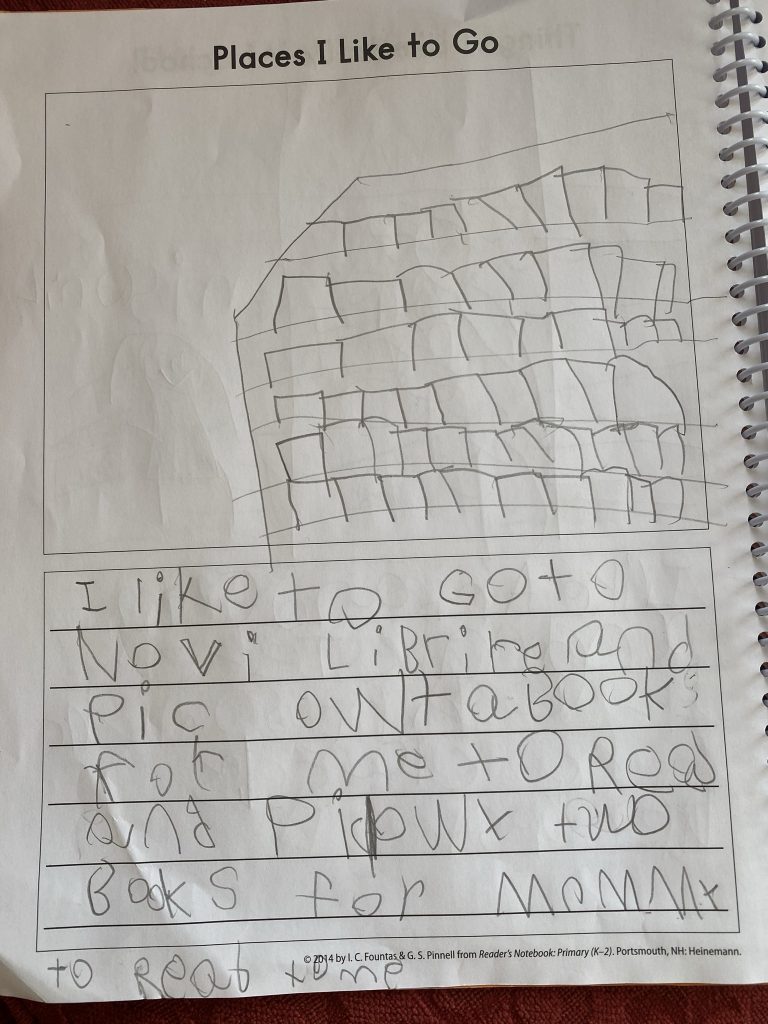 Places I Like to Go
I like to GO tO
Novi LiBrire and
Pic owt a BOOk
for me tO Read
and Pic owt two
Books for MoMMy
© 2014 by I. C. Fountas & G. S. Pinnell from Reader's Notebook: Primary (K–2). Portsmouth, NH: Heinemann.
to Reab to me